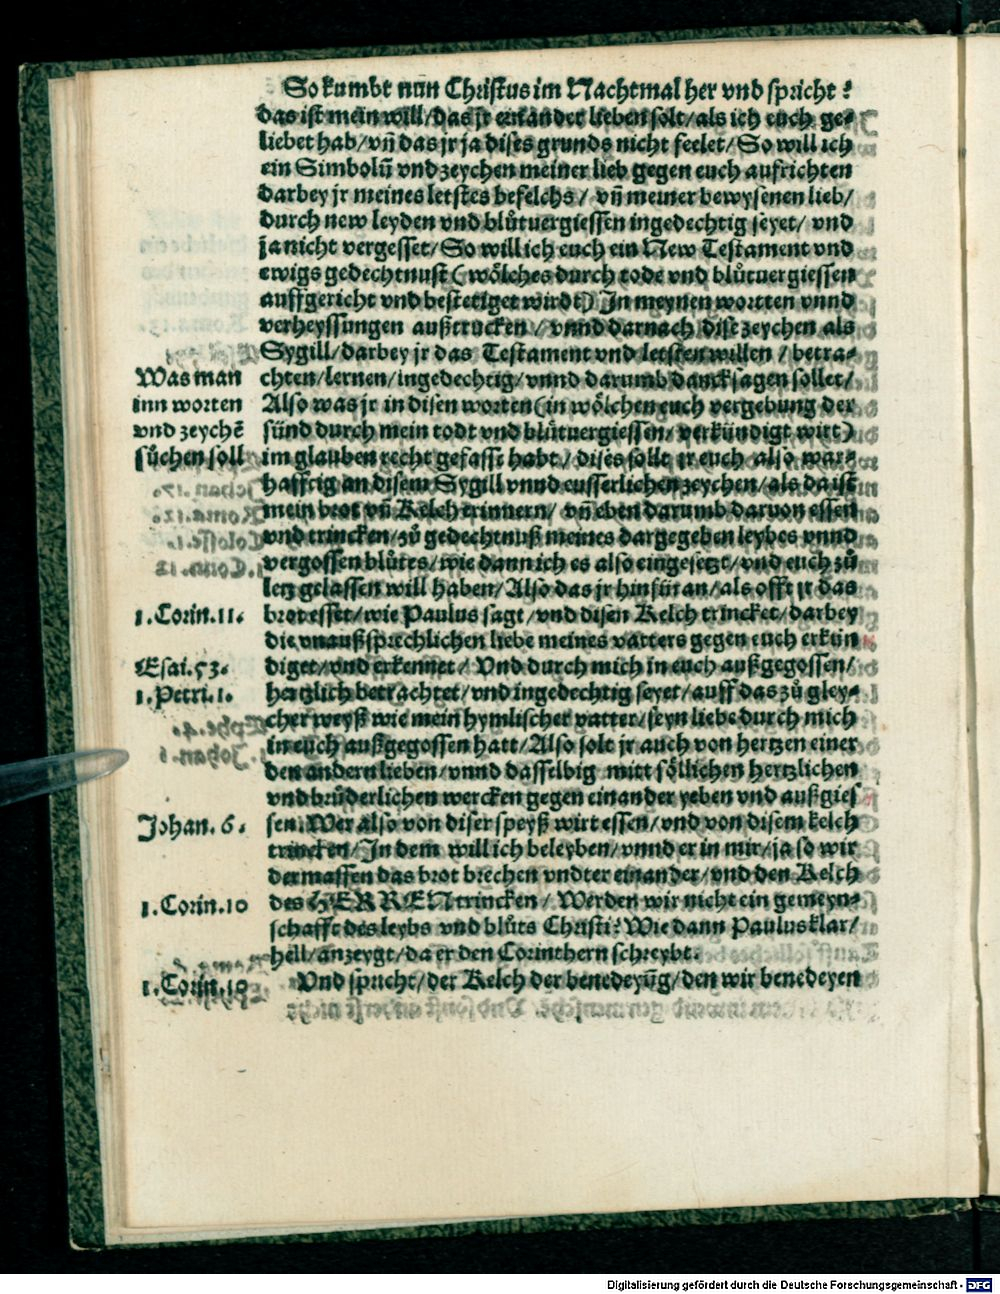 So kumbt nūn Christus im Nachtmal her vnd spricht:
das ist mein will/das jr einander lieben solt/als ich euch ge-
liebet hab/vn̄ das jr ja dises grunds nicht feelet/So will ich
ein Simbolū vnd zeychen meiner lieb gegen euch aufrichten
darbey jr meines letstes befelchs/ vn̄ meiner bewysenen lieb/
durch new leyden vnd blůtuergiessen ingedechtig seyet/ vnd
ja nicht vergesset/So will ich euch ein New Testament vnd
ewigs gedechtnust (wölches durch tode vnd blůtuergiessen
auffgericht vnd bestetiget wirdt) In meynen wortten vnnd
verheyssungen außtrucken/ vnnd darnach dise zeychen als
Sygill/darbey jr das Testament vnd letsten willen/ betra-
Was man
inn worten
vnd zeychē
sůchen soll
chten/lernen/ingedechtig/vnnd darumb dancksagen sollet/
Also was jr in disen worten(in wölchen euch vergebung der
sünd durch mein todt vnd blůtuergiessen/ verkündigt wirt)
im glauben recht gefasst habt/ dises sollt jr euch also war-
hafftig an disem Sygill vnnd eusserlichen zeychen/als da ist
mein brot vn̄ Kelch erinnern/ vn̄ eben darumb daruon essen
vnd trincken/zů gedechtnuß meines dargegeben leybes vnnd
vergossen blůtes/wie dann ich es also eingesetzt/vnd euch zů
letz gelassen will haben/Also das jr hinfüran/als offt jr das
1.Corin.11.
brot esset/wie Paulus sagt/vnd disen Kelch trincket/darbey
die vnaußsprechlichen liebe meines vatters gegen euch erkün
Esai.53.
diget/vnd erkennet/ Vnd durch mich in euch außgegossen/
1.Petri.1.
hertzlich betrachtet/vnd ingedechtig seyet/auff das zů gley-
cher weyß wie mein hymlischer vatter/seyn liebe durch mich
in euch außgegossen hatt/Also solt jr auch von hertzen einer
den andern lieben/vnnd dasselbig mitt söllichen hertzlichen
vnd brüderlichen wercken gegen einander yeben vnd außgies
Johan.6.
sen.Wer also von diser speyß wirt essen/vnd von disem kelch
trincken/In dem will ich beleyben/vnnd er in mir/ja so wir
dermassen das brot brechen vndter einander/vnd den Kelch
1.Corin.10
des HERREN trincken/ Werden wir nicht ein gemeyn-
schafft des leybs vnd blůts Christi? Wie dann Paulus klar/
hell/anzeygt/da er den Corinthern schreybt.
1.Corin.10
Vnd spricht/der Kelch der benedeyūg/den wir benedeyen
Digitalisierung gefördert durch die Deutsche Forschungsgemeinschaft - DFG